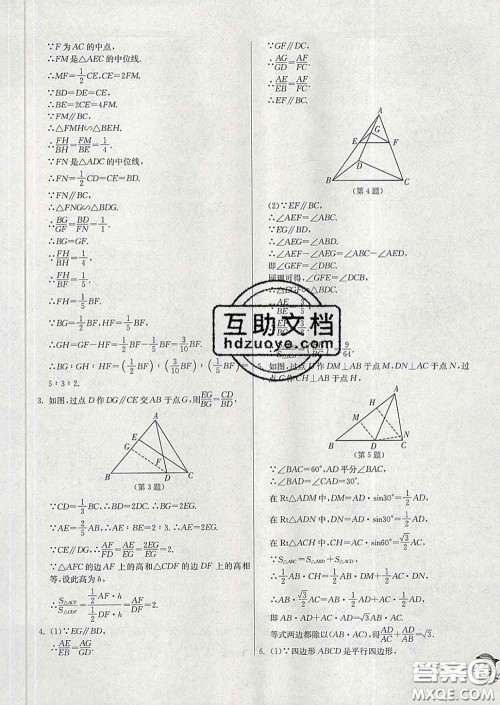 ∵F为AC的中点,
∴FM是△AEC的中位线.
∴MF=1/2CE、CE=2FM.
∵BD=DE=CE,
∴BE=2CE=4FM.
∵FM∥BC,
∴△FMH∽△BEH.
∴FH/BH=FM/BE=1/4.
∵FN是△ADC的中位线,
∴FN=1/2CD=CE=BD.
∵FN∥BC,
∴△FNG∽△BDG.
∴BG/GF=BD/FN=1/1.
∴BG=GF.
∵FH/BH=1/4,
∴FH/BF=1/5.
∴FH=1/5BF.
∵BG=1/2BF,HF=1/5BF,
∴GH=GF-HF=1/2BF-1/5BF=3/10BF.
∴BG:GH:FH=(1/2BF):(3/10BF):(1/5BF)=
5:3:2.
3. 如图,过点D作DG∥CE交AB于点G,则EG/BG=CD/BD.
A
E
G
F
B
D
C
(第3题)
∵CD=1/3BC,∴BD=2CD.∴BG=2EG.
∵AE=2/5AB,∴AE:BE=2:3.∴AE=2EG.
∵CE∥DG,∴AF/FD=AE/EG=2EG/EG=2.
∵△AFC的边AF上的高和△CDF的边DF上的高相
等,设此高为h,
∴S△ACF/S△CDF=(1/2AF·h)/(1/2DF·h)=AF/DF=2.
4. (1)∵EG∥BD,
∴AE/EB=AG/GD.
∵GF∥DC,
∴AG/GD=AF/FC.
∴AE/EB=AF/FC.
∴EF∥BC.
A
G
E
F
D
B
C
(第4题)
(2)∵EF∥BC,
∴∠AEF=∠ABC.
∵EG∥BD,
∴∠AEG=∠ABD.
∴∠AEF-∠AEG=∠ABC-∠ABD.
即∠GEF=∠DBC.
同理可得,∠GFE=∠DCB.
互助文档
hdzuoye.com
5. 如图,过点D作DM⊥AB于点M,DN⊥AC于点N,过
点C作CH⊥AB于点H.
A
H
M
N
B
D
C
(第5题)
∵∠BAC=60°,AD平分∠BAC,
∴∠BAD=∠CAD=30°.
在Rt△ADM中,DM=AD·sin30°=1/2AD,
在Rt△ADN中,DN=AD·sin30°=1/2AD,
在Rt△ACH中,CH=AC·sin60°=√3/2AC.
∵S△ABC=S△ABD+S△ACD,
∴1/2AB·CH=1/2AB·DM+1/2AC·DN.
∴AB·√3/2AC=AB·1/2AD+AC·1/2AD.
等式两边都除以(AB·AC),得AD/AC+AD/AB=√3.
6. (1)∵四边形ABCD是平行四边形,
答案圈
MXQE.COM